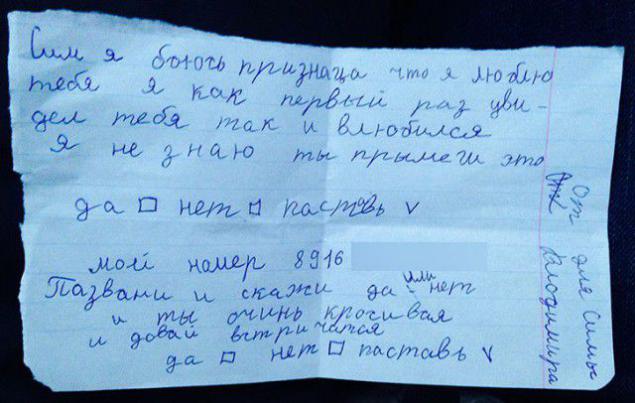 Сим я боюсь признаца что я люблю
тебя я как первый раз уви-
дел тебя так и влюбился
я не знаю ты прымеш это
да □ нет □ паставь v
мой номер 8916
Пазвани и скажи да или нет
и ты очинь кросивая
и довай встричатся
да □ нет □ паставь v
От Володимира
для Симы